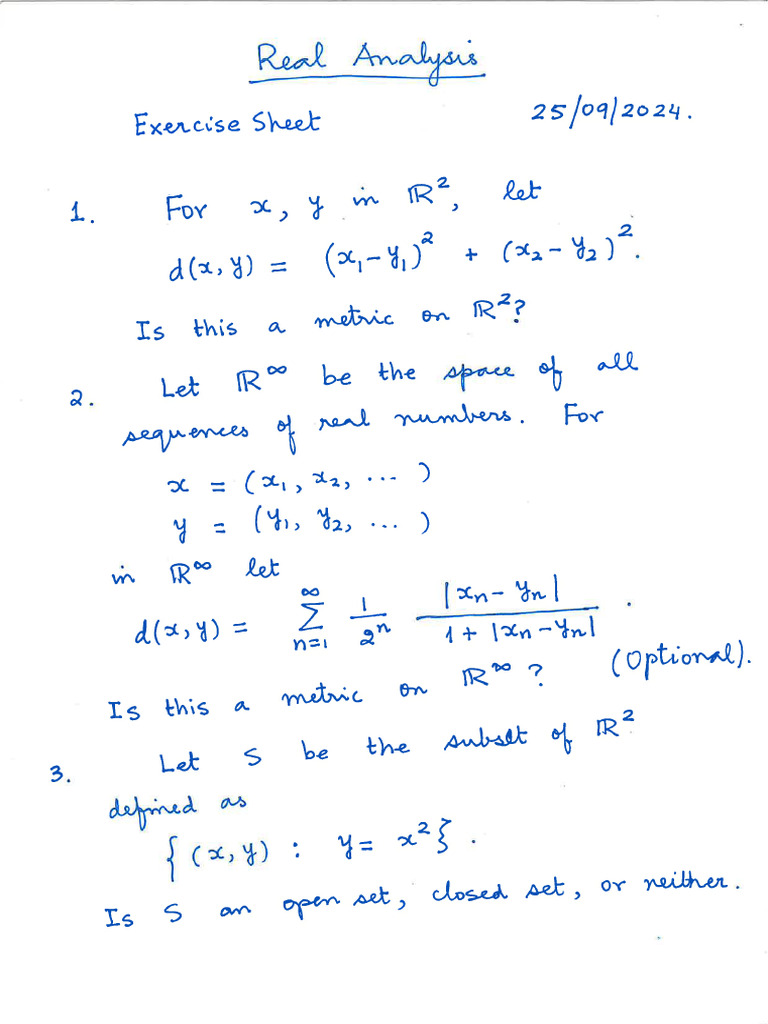 Real Analysis
Exercise Sheet 25/09/2024.
1. For x, y in ℝ², let
d(x, y) = (x₁ - y₁)² + (x₂ - y₂)².
Is this a metric on ℝ²?
2. Let ℝ^∞ be the space of all
sequences of real numbers. For
x = (x₁, x₂, ... )
y = (y₁, y₂, ... )
in ℝ^∞ let
d(x, y) = ∑_{n=1}^{∞} 1/2ⁿ |xₙ - yₙ| / (1 + |xₙ - yₙ|) .
Is this a metric on ℝ^∞ ? (Optional).
3. Let S be the subset of ℝ²
defined as
{ (x, y) : y = x² } .
Is S an open set, closed set, or neither.